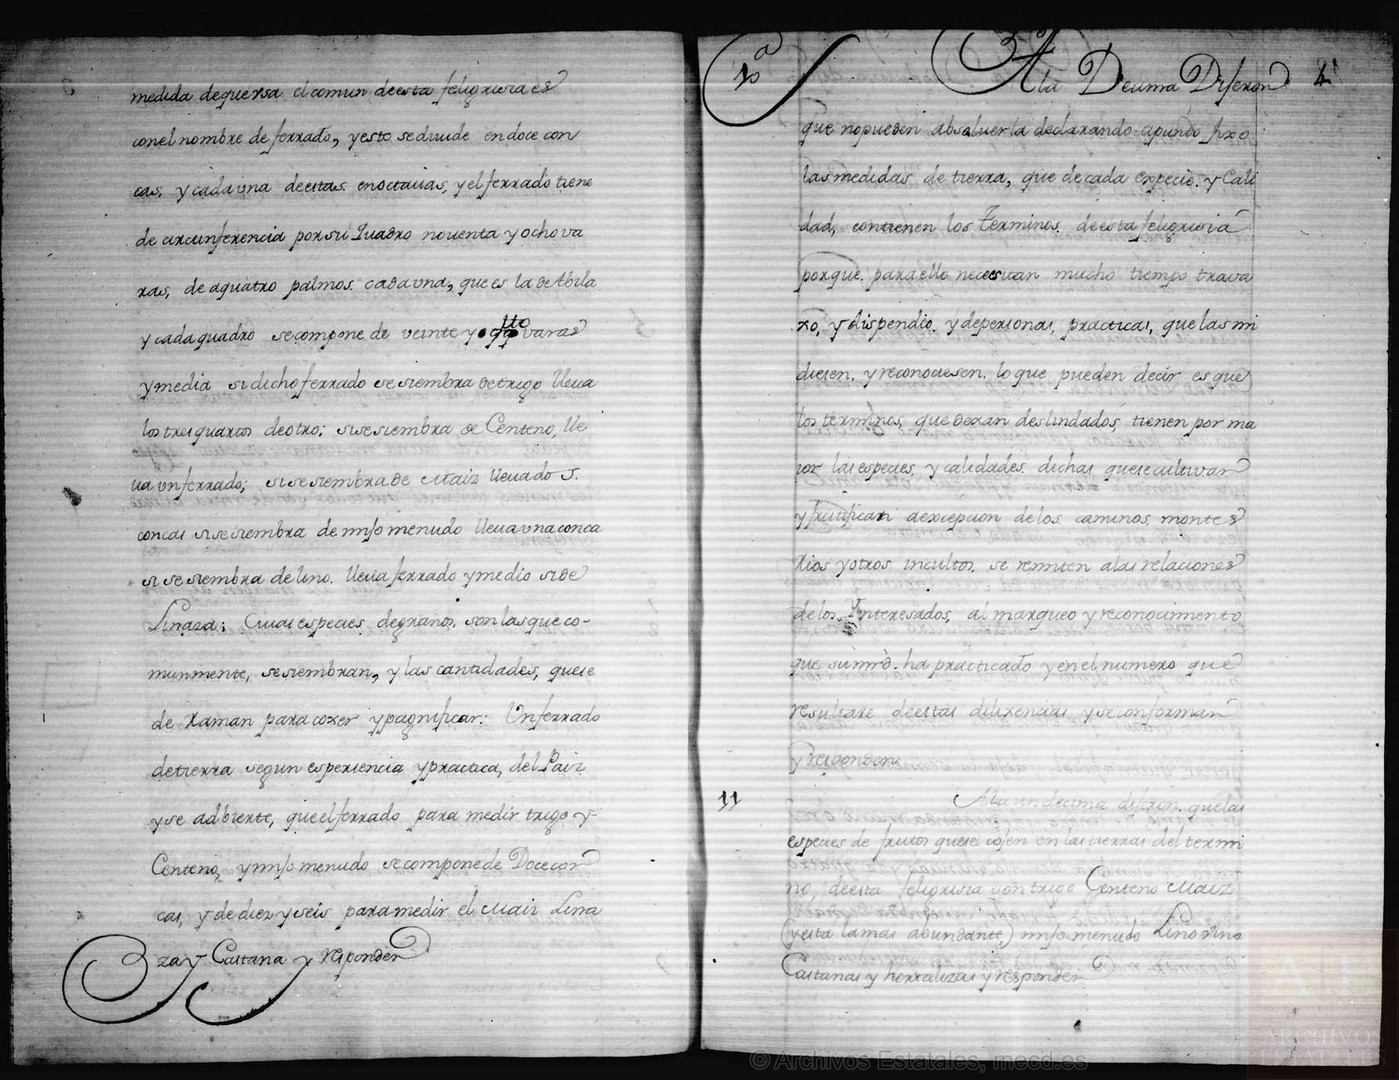 medida dequevsa elcomun deesta feligresia es
conel nombre de ferrado, yeste sedivide endoce con
cas, y cada una deestas enoctavas, y el ferrado tiene
de circunferencia por su quadro noventa y ocho va
ras, de aquatro palmos cada una, que es la de Abila
y cada quadro secompone de veinte y qtto varas
y media si dicho ferrado sesiembra de trigo lleva
los tres quartos deotro; si sesiembra de Centeno, lle
va un ferrado; si sesiembra de Maiz lleva dos
concas si sesiembra de mijo menudo lleva una conca
si sesiembra de lino lleva ferrado y medio si de
Linaza; Cuias especies de granos, son las que co-
munmente, se siembran, y las cantidades, que se
de Raman para cojer y pagnificar: Un ferrado
de tierra segun esperiencia y practica, del Pais
y se adbierte, que el ferrado para medir trigo y
Centeno, y mijo menudo se compone de Doce con
cas, y de diez y seis para medir el Maiz Lina
za y Castana y responden
4
10ª A la Decima Dijeron
que no pueden absolverla declarando apunto fixo
las medidas de tierra, que de cada especie y Cali
dad, contienen los Terminos deesta feligresia
porque para ello necesitan mucho tiempo trava
xo, y dispendio y depersonas, practicas, que las mi
diesen y reconociesen lo que pueden decir es que
los terminos, que dexan deslindados, tienen por ma
ior las especies, y calidades dichas que se cultivan
y frutifican a excepcion de los caminos montes
Rios y otros incultos se remiten alas relaciones
de los Ynteresados, al marqueo y reconocimiento
que su mrd. ha practicado y en el numero que
resultare deestas dilixencias y se conforman
y responden
11 A la undecima dijeron que las
especies de frutos que se cojen en las tierras del termi
no deesta feligresia son trigo Centeno Maiz
(y esta la mas abundante) mijo menudo Lino vino
Castanas y hortalizas y responden
© Archivos Estatales, mecd.es
ARCHIVOS
ESTATALES